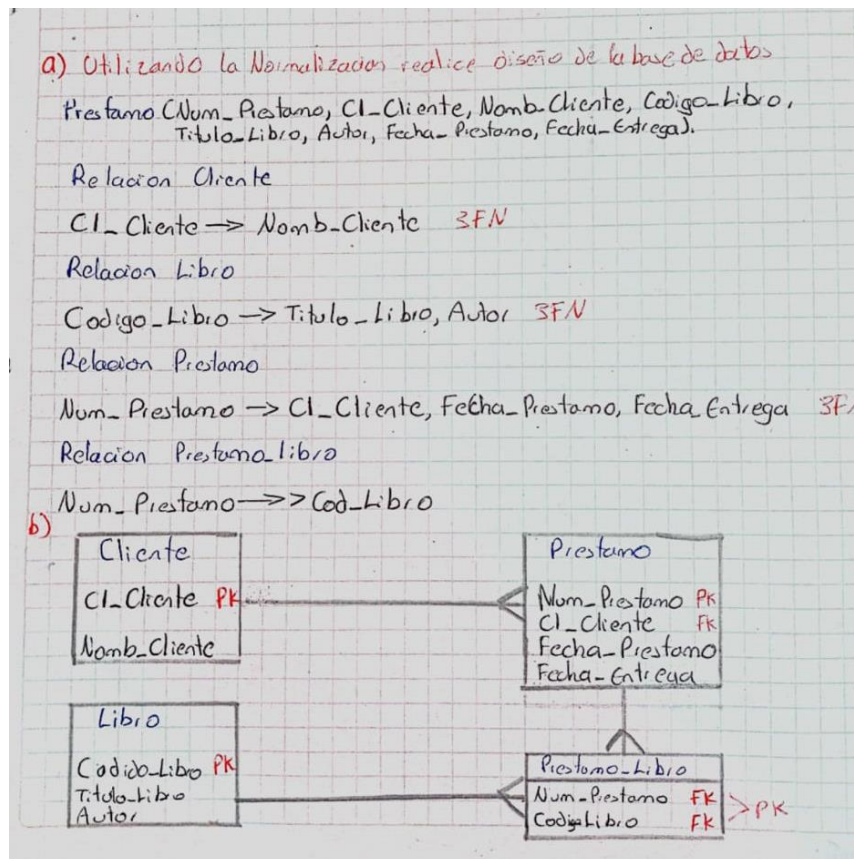 a) Utilizando la Normalizacion realice diseño de la base de datos
Prestamo (Num_Prestamo, CI_Cliente, Nomb_Cliente, Codigo_Libro,
Titulo_Libro, Autor, Fecha_Prestamo, Fecha_Entrega).
Relacion Cliente
CI_Cliente → Nomb_Cliente 3FN
Relacion Libro
Codigo_Libro → Titulo_Libro, Autor 3FN
Relacion Prestamo
Num_Prestamo → CI_Cliente, Fecha_Prestamo, Fecha_Entrega 3FN
Relacion Prestamo_libro
Num_Prestamo →> Cod_Libro
b)
Cliente
CI_Cliente PK
Nomb_Cliente
Prestamo
Num_Prestamo PK
CI_Cliente FK
Fecha_Prestamo
Fecha_Entrega
Libro
Codido_Libro PK
Titulo_Libro
Autor
Prestamo_Libro
Num_Prestamo FK
CodigoLibro FK
>PK